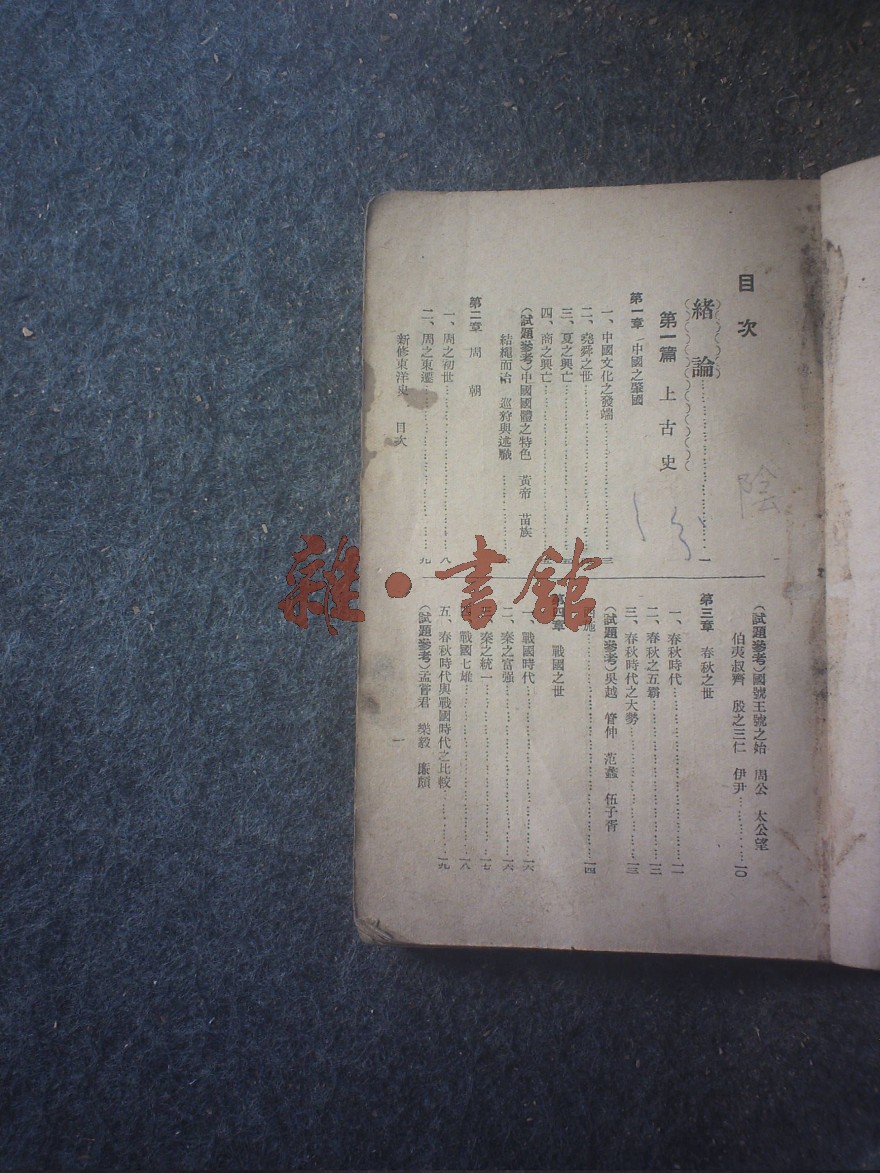 目次
緒論……一
第一篇 上古史
第一章 中國之肇國
一、中國文化之發端……三
二、堯舜之世
三、夏之興亡……五
四、商之興亡
(試題參考)中國國體之特色 黃帝 苗族
結繩而治 巡狩與述職
第二章 周朝
一、周之初世……八
二、周之東遷……九
新修東洋史 目次
(試題參考)國號王號之始 周公 太公望
伯夷叔齊 殷之三仁 伊尹……一〇
第三章 春秋之世
一、春秋時代……一一
二、春秋之五霸……一二
三、春秋時代之大勢……一三
(試題參考)吳越 管仲 范蠡 伍子胥
西施……一四
第四章 戰國之世
一、戰國時代……一六
二、秦之富强……一六
三、秦之統一……一七
四、戰國七雄……一八
五、春秋時代與戰國時代之比較……一九
(試題參考)孟嘗君 樂毅 廉頗
一
陰
雜·書館